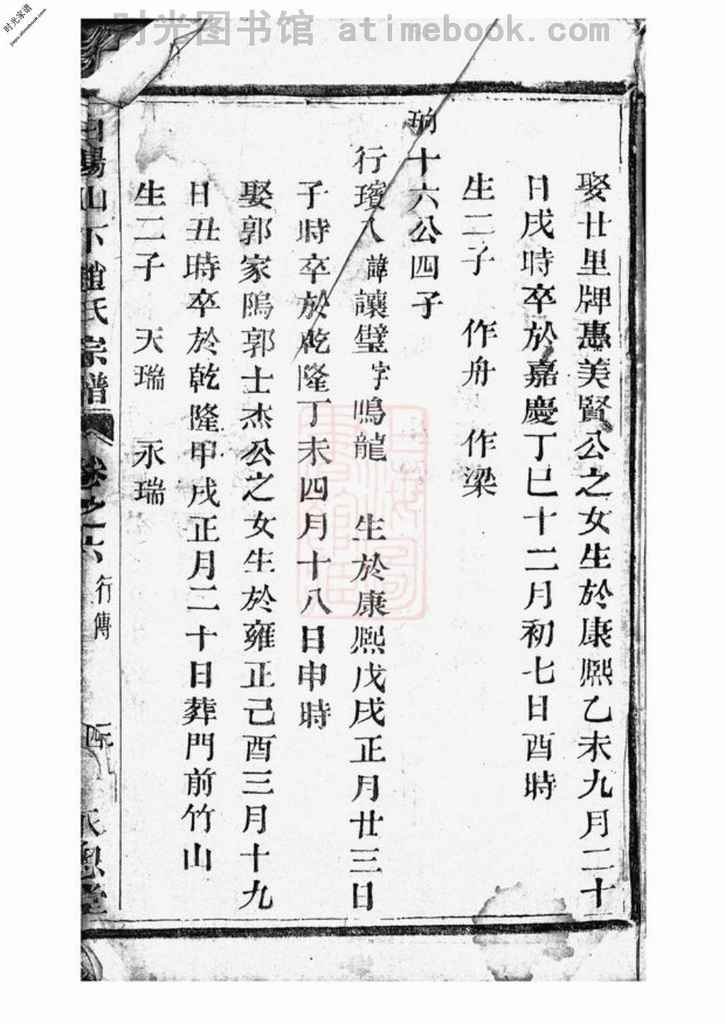 时光图书馆 # atimebook.com
时光家谱
娶廿里牌惠美賢公之女生於康熙乙未九月二十
日戌時卒於嘉慶丁巳十二月初七日酉時
生二子 作舟 作梁
珦十六公四子
行璸八諱讓璧字鳴龍 生於康熙戊戌正月廿三日
子時卒於乾隆丁未四月十八日申時
娶郭家隖郭士杰公之女生於雍正己酉三月十九
日丑時卒於乾隆甲戌正月二十日葬門前竹山
生二子 天瑞 永瑞
山下趙氏宗譜 卷之六 行傳